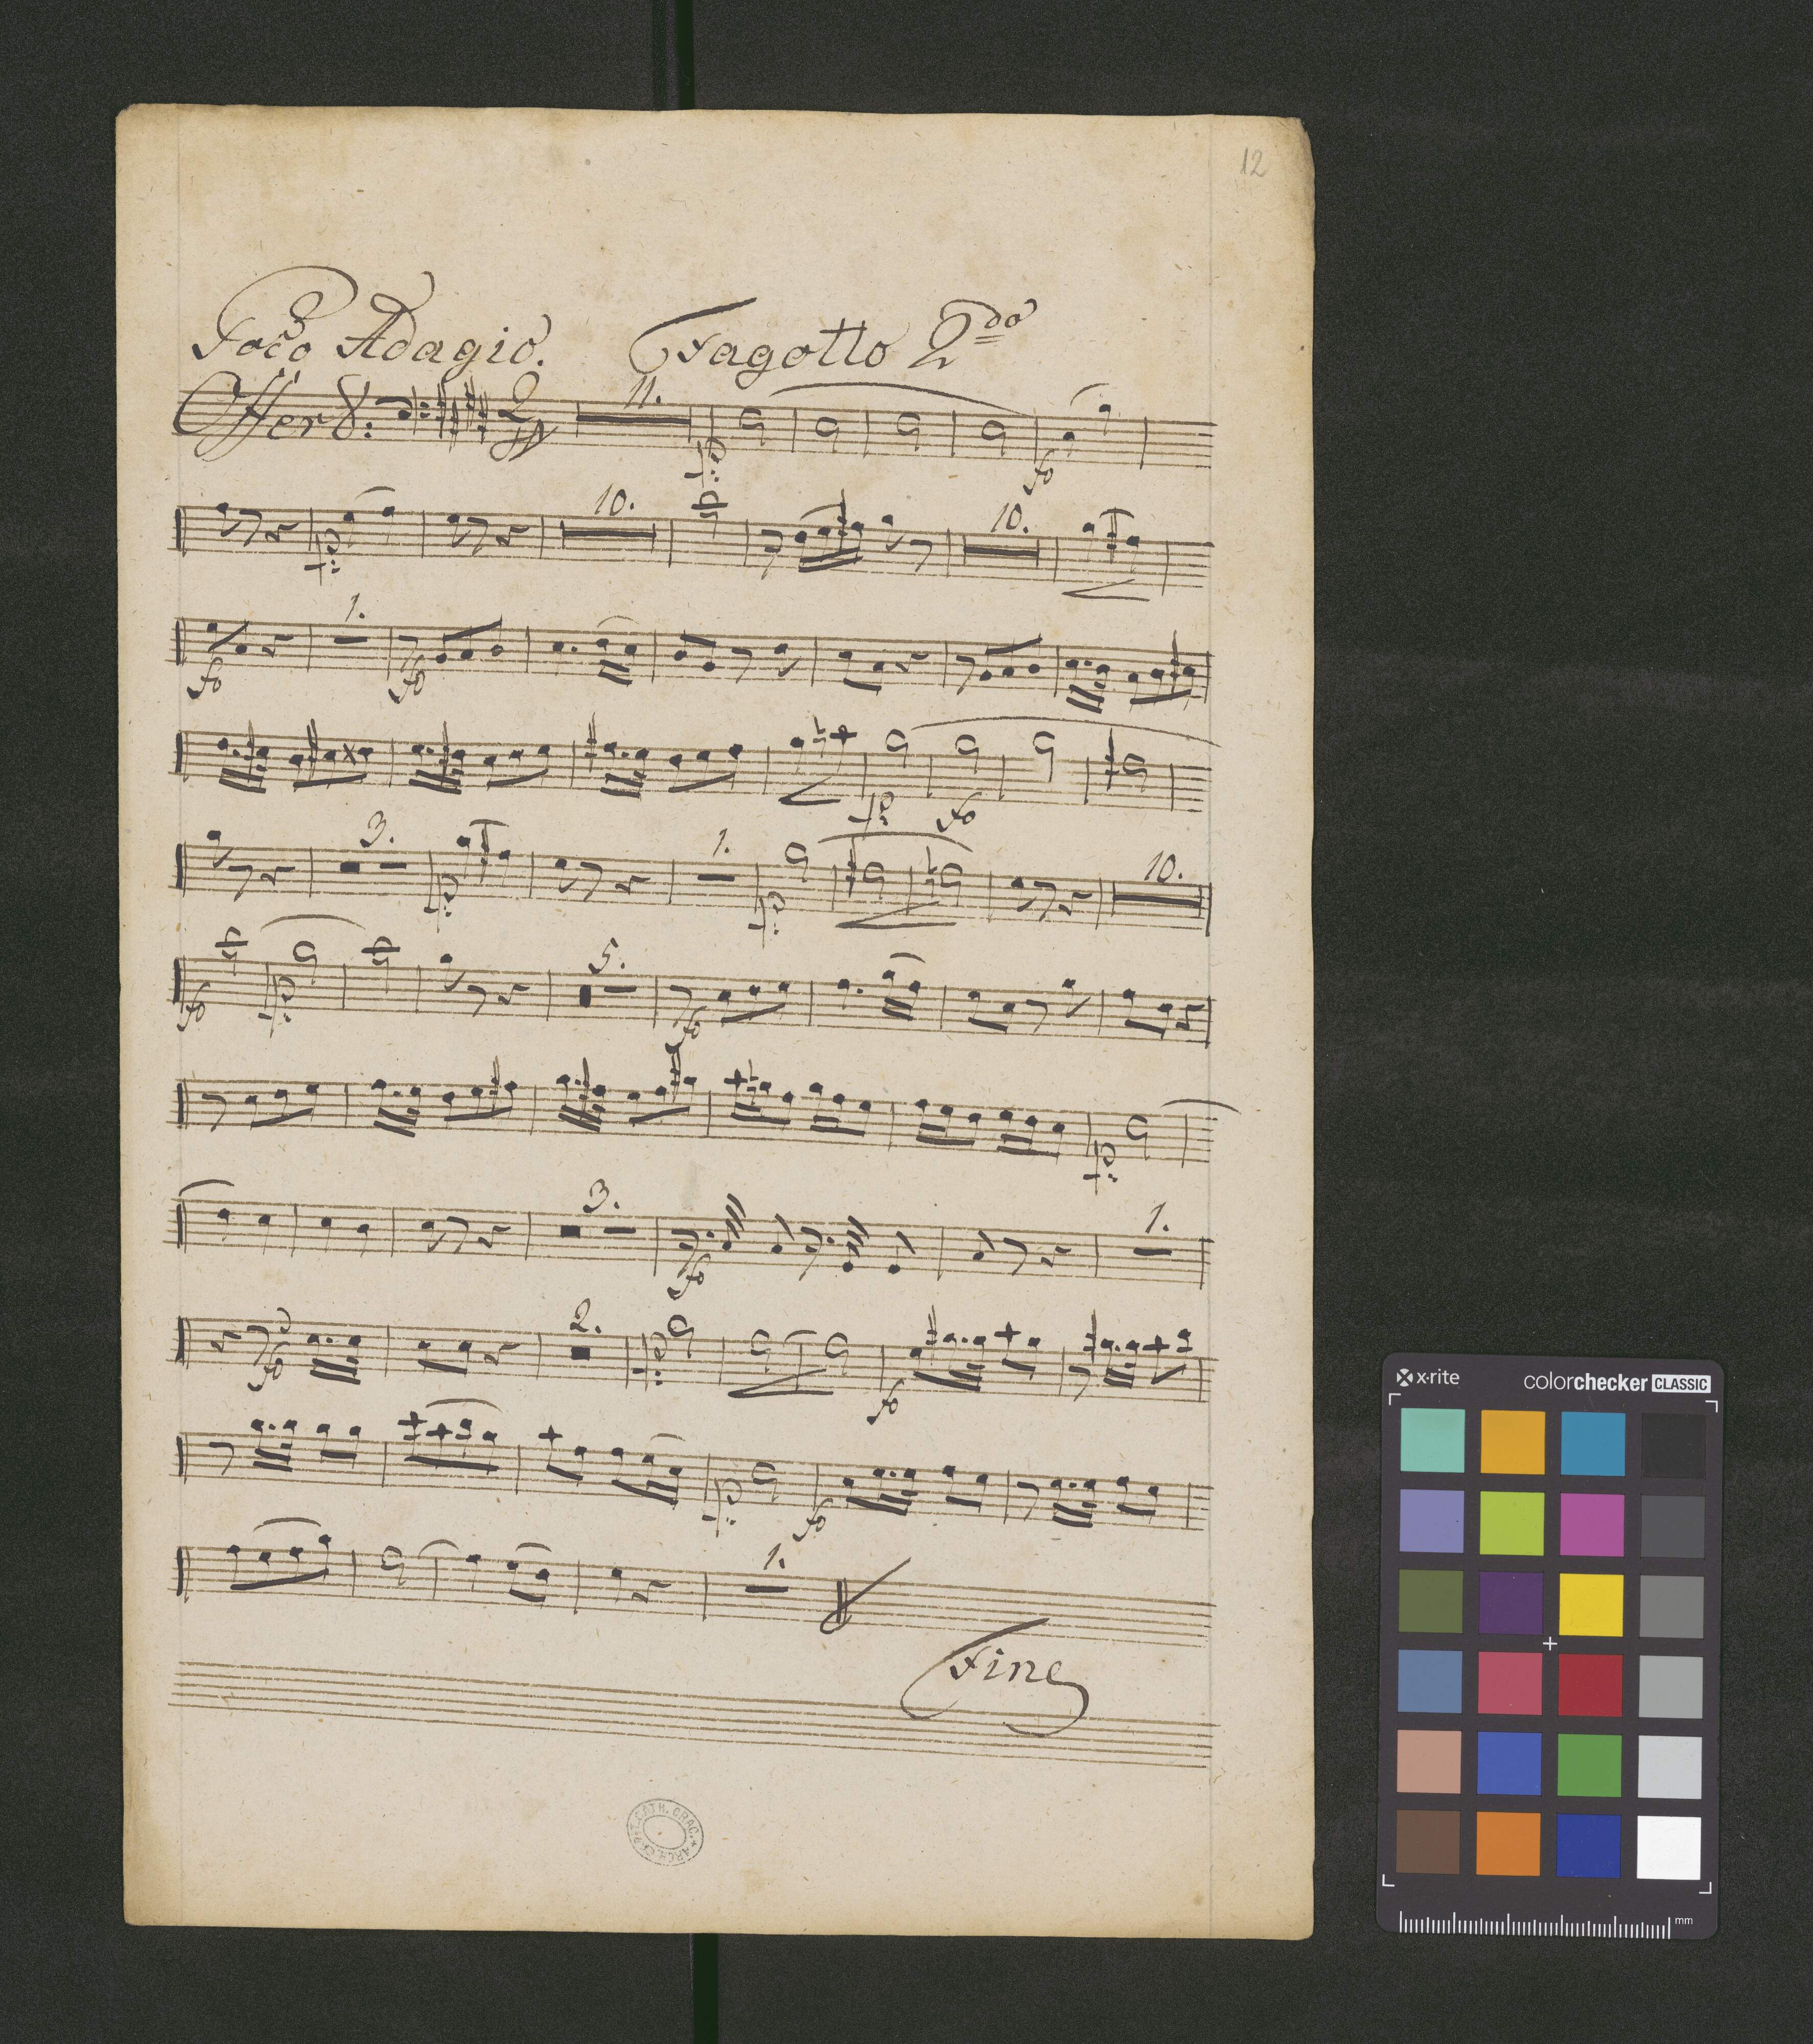 12
Poco Adagio. Fagotto 2do
Offer: 2/4 11. p: fo
p: 10. 10.
1. fo fo
p: fo
3. 1. 10. p: p:
5. fo p: fo
p:
3. 1. fo
2. fo p: fo
p: fo
1.
Fine
ARCH. CATH. CRAC.
x·rite colorchecker CLASSIC
mm